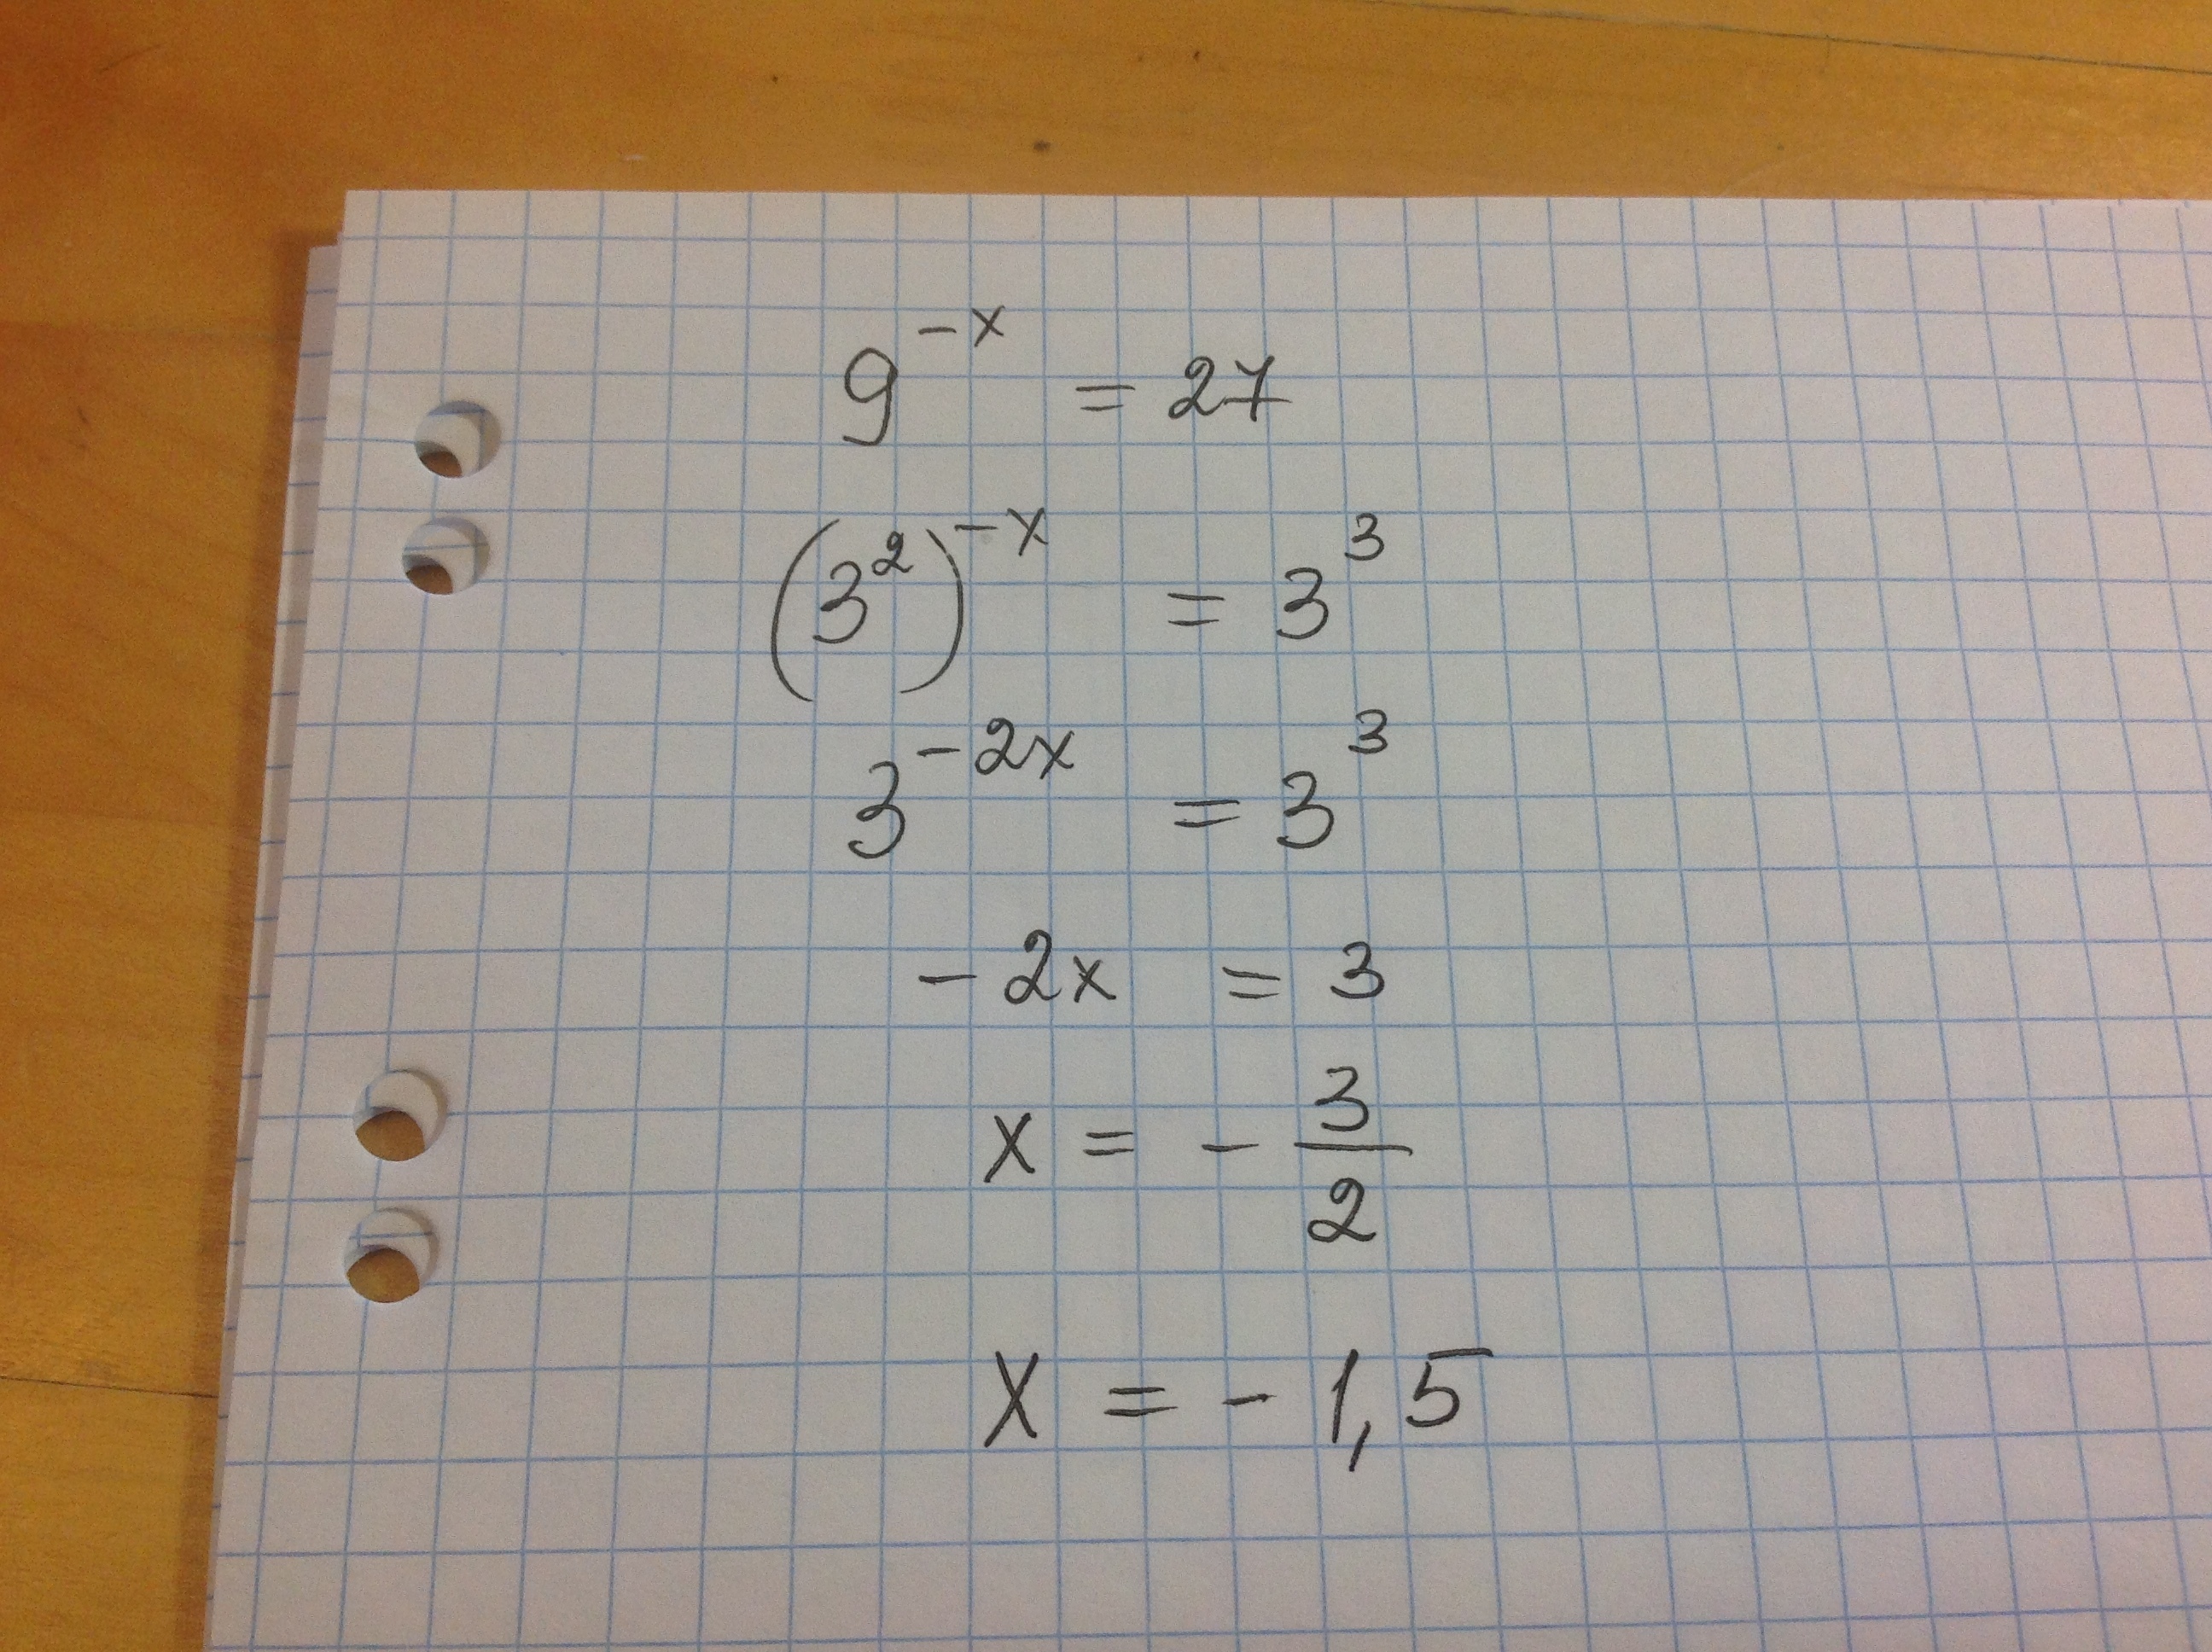 9^{-x} = 27
(3^2)^{-x} = 3^3
3^{-2x} = 3^3
-2x = 3
x = -\frac{3}{2}
x = -1,5